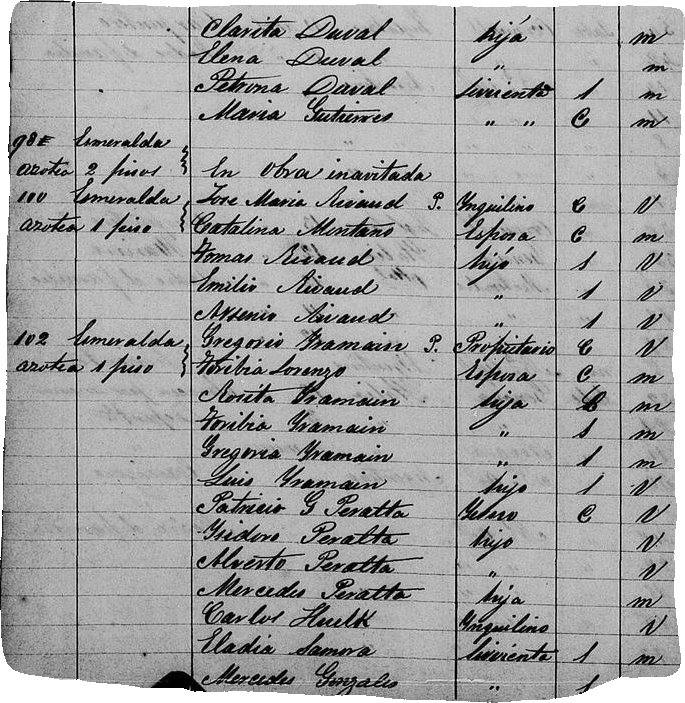 Clarita Duval hija m
Elena Duval " m
Petrona Duval Sirvienta S m
Maria Gutierres " " C m
98E Esmeralda
azotea 2 pisos En Obra inavitada
100 Esmeralda Jose Maria Rivaud P. Ynquilino C V
azotea 1 piso Catalina Montano Esposa C m
Tomas Rivaud hijo S V
Emilio Rivaud " S V
Arsenio Rivaud " S V
102 Esmeralda Gregorio Gramain P. Propietario C V
azotea 1 piso Toribia Lorenzo Esposa C m
Rosita Gramain hija C m
Toribia Gramain " S m
Gregoria Gramain " S m
Luis Gramain hijo S V
Patricio G Peralta Yerno C V
Ysidoro Peralta hijo V
Alverto Peralta " V
Mercedes Peralta hija m
Carlos Huelk Ynquilino V
Eladia Samora Sirvienta S m
Mercedes Gonzales " S